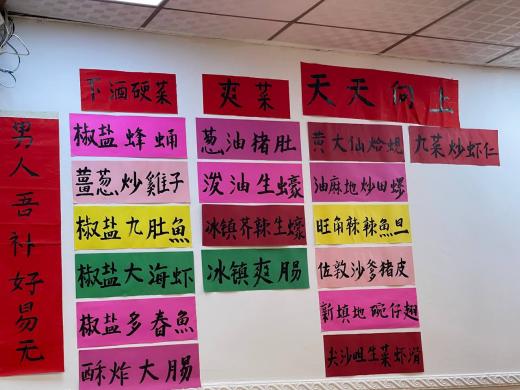 男人吾补好易无
下酒硬菜
椒盐蜂蛹
薑葱炒雞子
椒盐九肚魚
椒盐大海虾
椒盐多春魚
酥炸大肠
爽菜
葱油猪肚
泼油生蠔
冰镇芥辣生蠔
冰镇爽腸
天天向上
黄大仙蛤蜆
油麻地炒田螺
旺角辣辣魚旦
佐敦沙爹猪皮
新填地碗仔翅
尖沙咀生菜虾滑
九菜炒虾仁